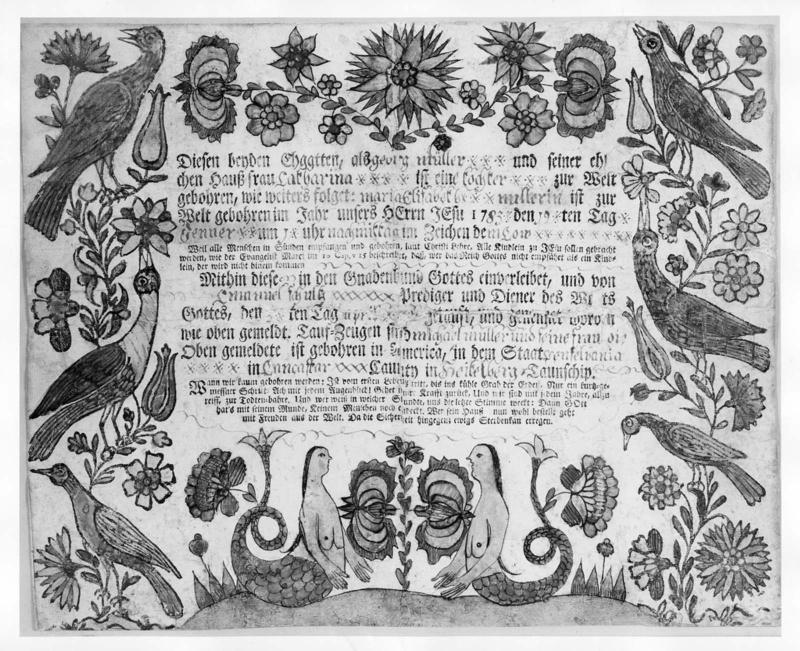 Diesen beyden Ehgatten, als georg müller und seiner eh
chen Haußfrau Catharina ist eine tochter zur Welt
gebohren, wie weiters folget: maria Elisabeth müllerin ist zur
Welt gebohren im Jahr unsers HErrn JEsu den ten Tag
Jenner um 7 uhr nagmittag im Zeichen dem Low
Weil alle Menschen in Sünden empfangen und gebohren, laut Christi Lehre. Alle Kindlein zu JEsu sollen gebracht
werden, wie der Evangelist Marci im 10 Cap. v. 15 beschreibet, daß, wer das Reich Gottes nicht empfähet als ein Kind-
lein, der wird nicht hinein kommen
Mithin dieses in den Gnadenbund Gottes einverleibet, und von
Emanuel Schulz Prediger und Diener des
Gottes, den ten Tag getauft, und genennet worden
wie oben gemeldt. Tauf-Zeugen sind michael müller und seine frau
Oben gemeldete ist gebohren in America, in dem Staat
in Lancaster Caunty in Heidelberg Taunschip.
Wann wir kaum gebohren werden; Ist vom ersten Lebens tritt, bis ins kühle Grab der Erden, Nur ein kurtzge-
meßner Schritt. Ach mit jedem Augenblick! Gehet unsre Kraft zurück, Und wir sind mit jedem Jahre, allzu
reiff, zur Todtenbahre. Und wer weiß in welcher Stunde, uns die letzte Stimme weckt: Dann GOtt
hat's mit seinem Munde, Keinem Menschen noch entdeckt. Wer sein Hauß nun wohl bestellt geht
mit Freuden aus der Welt. Da die Sicherheit hingegen ewigs Sterben kan erregen.